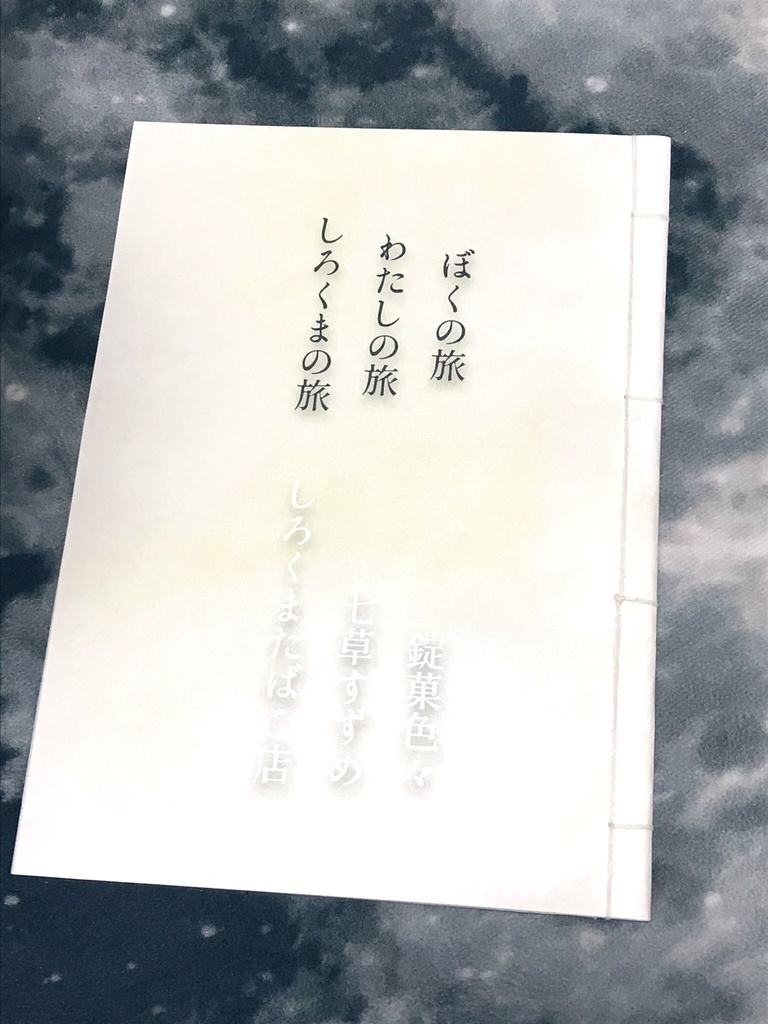 ぼくの旅
わたしの旅
しろくまの旅
錠菓色々
七草すずめ
しろくまたばこ店